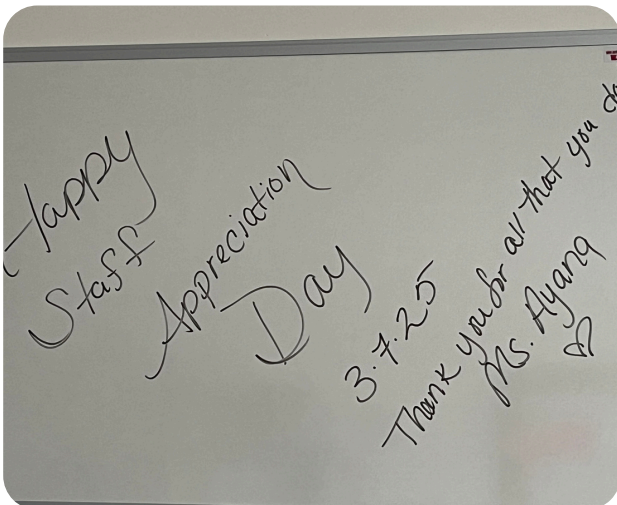 Happy
Staff
Appreciation
Day
3.7.25
Thank you for all that you do
Ms. Ayana